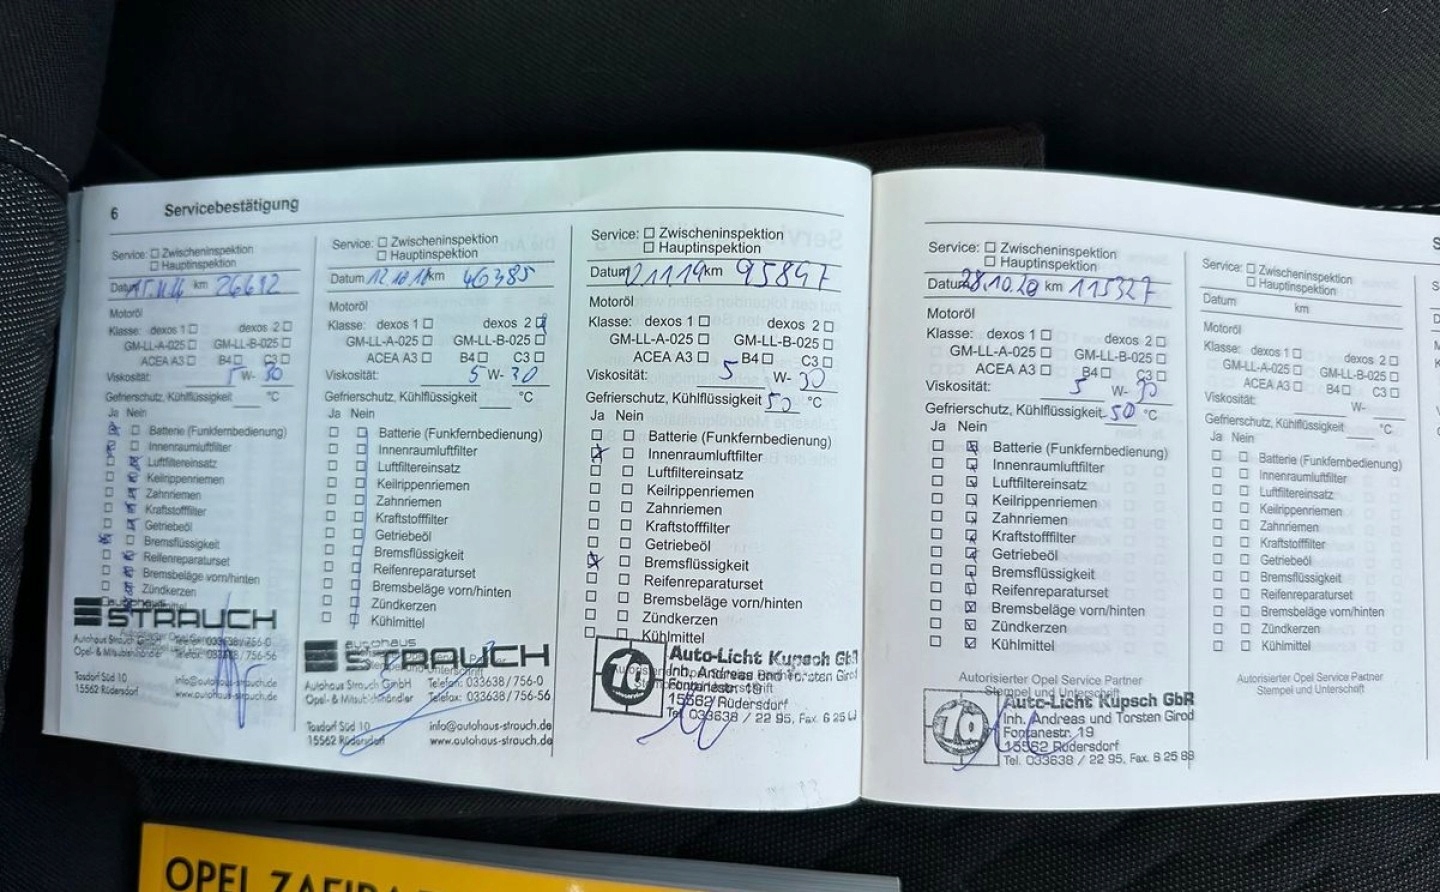 6 Servicebestätigung
Service: ☐ Zwischeninspektion
☐ Hauptinspektion
km 26612
Motoröl
Klasse: dexos 1 ☐ dexos 2 ☐
GM-LL-A-025 ☐ GM-LL-B-025 ☐
ACEA A3 ☐ B4 ☐ C3 ☐
Viskosität: 5 W- 30
Gefrierschutz, Kühlflüssigkeit ____ °C
Ja Nein
Batterie (Funkfernbedienung)
Innenraumluftfilter
Luftfiltereinsatz
Keilrippenriemen
Zahnriemen
Kraftstofffilter
Getriebeöl
Bremsflüssigkeit
Reifenreparaturset
Bremsbeläge vorn/hinten
Zündkerzen
Kühlmittel
STRAUCH
Autohaus Strauch GmbH Telefon: 033638/756-0
Opel- & Mitsubishi-Händler Telefax: 033638/756-56
Tasdorf Süd 10 info@autohaus-strauch.de
15562 Rüdersdorf www.autohaus-strauch.de
Service: ☐ Zwischeninspektion
☐ Hauptinspektion
Datum km 46385
Motoröl
Klasse: dexos 1 ☐ dexos 2 ☒
GM-LL-A-025 ☐ GM-LL-B-025 ☐
ACEA A3 ☐ B4 ☐ C3 ☐
Viskosität: 5 W- 30
Gefrierschutz, Kühlflüssigkeit ____ °C
Ja Nein
Batterie (Funkfernbedienung)
Innenraumluftfilter
Luftfiltereinsatz
Keilrippenriemen
Zahnriemen
Kraftstofffilter
Getriebeöl
Bremsflüssigkeit
Reifenreparaturset
Bremsbeläge vorn/hinten
Zündkerzen
Kühlmittel
autohaus
STRAUCH
Autohaus Strauch GmbH Telefon: 033638/756-0
Opel- & Mitsubishi-Händler Telefax: 033638/756-56
Tasdorf Süd 10 info@autohaus-strauch.de
15562 Rüdersdorf www.autohaus-strauch.de
Service: ☐ Zwischeninspektion
☐ Hauptinspektion
Datum 21119 km 95897
Motoröl
Klasse: dexos 1 ☐ dexos 2 ☐
GM-LL-A-025 ☐ GM-LL-B-025 ☐
ACEA A3 ☐ B4 ☐ C3 ☐
Viskosität: 5 W- 30
Gefrierschutz, Kühlflüssigkeit 50 °C
Ja Nein
☐ ☐ Batterie (Funkfernbedienung)
☒ ☐ Innenraumluftfilter
☐ ☐ Luftfiltereinsatz
☐ ☐ Keilrippenriemen
☐ ☐ Zahnriemen
☐ ☐ Kraftstofffilter
☐ ☐ Getriebeöl
☒ ☐ Bremsflüssigkeit
☐ ☐ Reifenreparaturset
☐ ☐ Bremsbeläge vorn/hinten
☐ ☐ Zündkerzen
☐ ☐ Kühlmittel
Auto-Licht Kupsch GbR
Inh. Andreas und Torsten Girod
Fontanestr. 19
15562 Rüdersdorf
Tel. 033638 / 22 95, Fax. 6 25
Service: ☐ Zwischeninspektion
☐ Hauptinspektion
Datum 28.10.20 km 115327
Motoröl
Klasse: dexos 1 ☐ dexos 2 ☐
GM-LL-A-025 ☐ GM-LL-B-025 ☐
ACEA A3 ☐ B4 ☐ C3 ☐
Viskosität: 5 W- 30
Gefrierschutz, Kühlflüssigkeit 50 °C
Ja Nein
☐ ☒ Batterie (Funkfernbedienung)
☐ ☒ Innenraumluftfilter
☐ ☒ Luftfiltereinsatz
☐ ☒ Keilrippenriemen
☐ ☒ Zahnriemen
☐ ☒ Kraftstofffilter
☐ ☒ Getriebeöl
☐ ☒ Bremsflüssigkeit
☐ ☒ Reifenreparaturset
☐ ☒ Bremsbeläge vorn/hinten
☐ ☒ Zündkerzen
☐ ☒ Kühlmittel
Autorisierter Opel Service Partner
Stempel und Unterschrift
Auto-Licht Kupsch GbR
Inh. Andreas und Torsten Girod
Fontanestr. 19
15562 Rüdersdorf
Tel. 033638 / 22 95, Fax. 6 25 88
Service: ☐ Zwischeninspektion
☐ Hauptinspektion
Datum km
Motoröl
Klasse: dexos 1 ☐ dexos 2 ☐
GM-LL-A-025 ☐ GM-LL-B-025 ☐
ACEA A3 ☐ B4 ☐ C3 ☐
Viskosität: ____ W- ____
Gefrierschutz, Kühlflüssigkeit ____ °C
Ja Nein
☐ ☐ Batterie (Funkfernbedienung)
☐ ☐ Innenraumluftfilter
☐ ☐ Luftfiltereinsatz
☐ ☐ Keilrippenriemen
☐ ☐ Zahnriemen
☐ ☐ Kraftstofffilter
☐ ☐ Getriebeöl
☐ ☐ Bremsflüssigkeit
☐ ☐ Reifenreparaturset
☐ ☐ Bremsbeläge vorn/hinten
☐ ☐ Zündkerzen
☐ ☐ Kühlmittel
Autorisierter Opel Service Partner
Stempel und Unterschrift
OPEL ZAFIRA